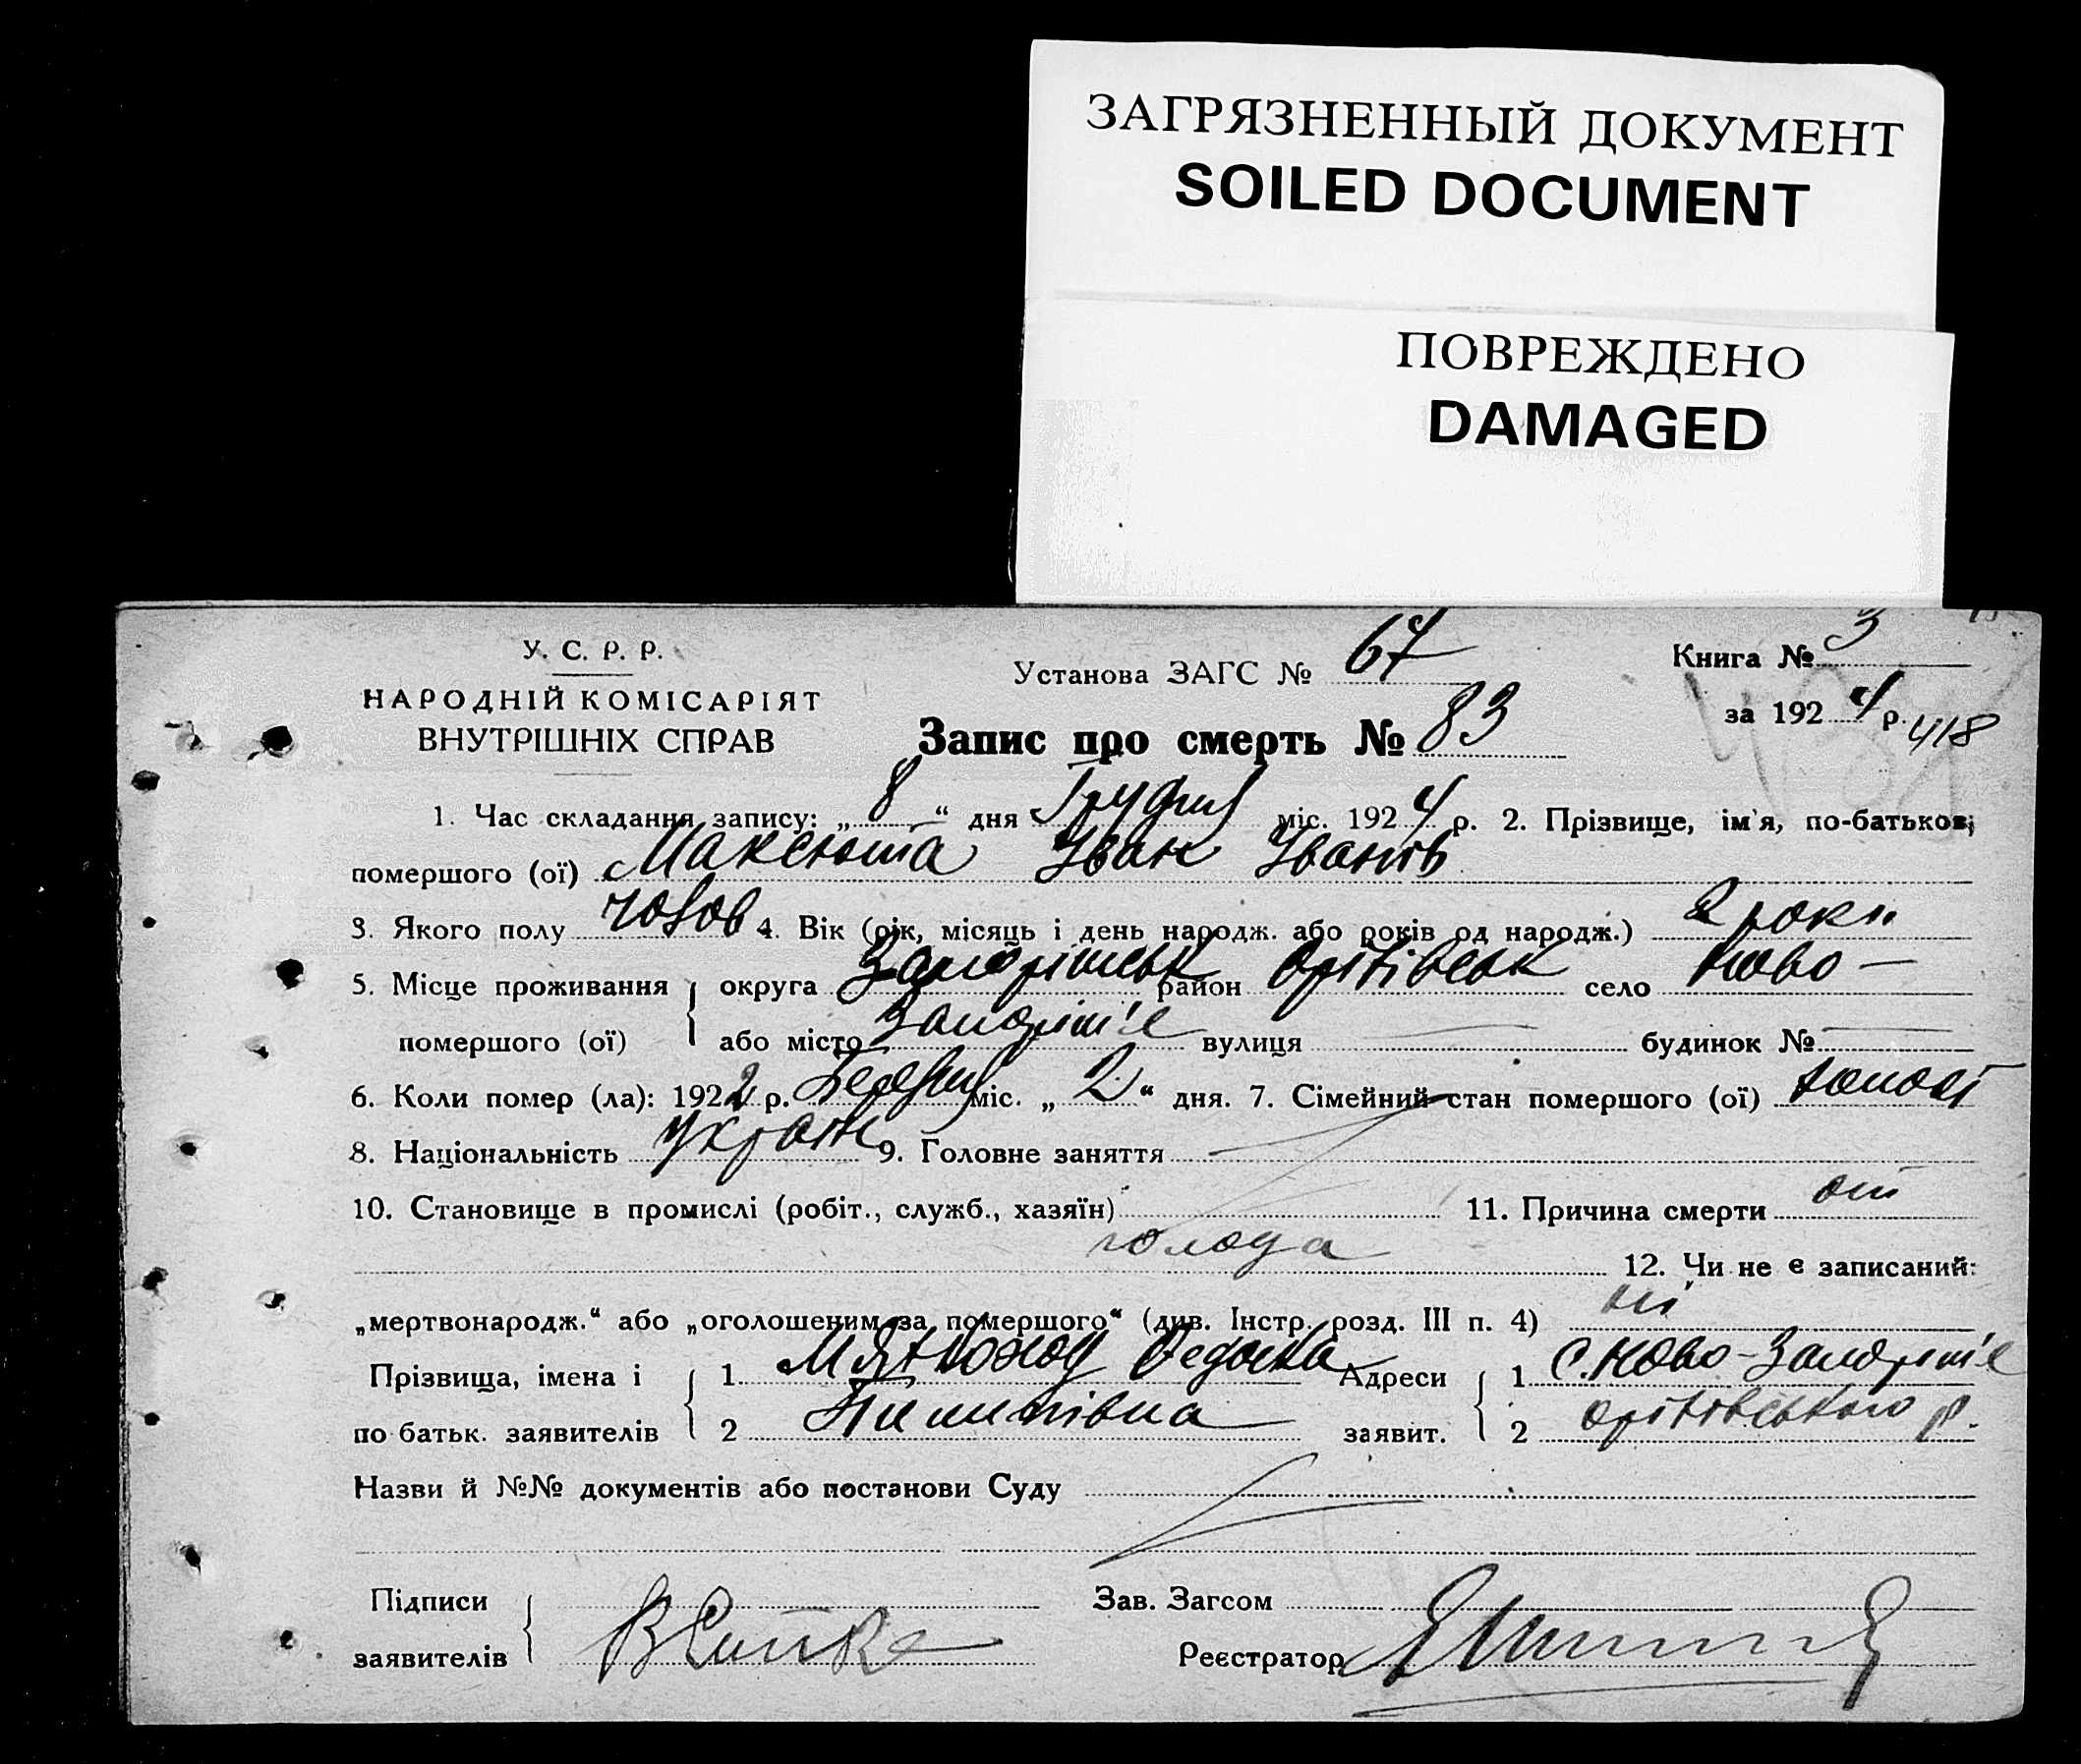 ЗАГРЯЗНЕННЫЙ ДОКУМЕНТ
SOILED DOCUMENT
ПОВРЕЖДЕНО
DAMAGED
У. С. Р. Р.
НАРОДНІЙ КОМІСАРІЯТ
ВНУТРІШНІХ СПРАВ
Установа ЗАГС № 67
Книга № 3
за 1924 р. 418
Запис про смерть № 83
1. Час складання запису: „8“ дня Грудня міс. 1924 р. 2. Прізвище, ім'я, по-батькові
помершого (ої) Максюта Іван Іванів
3. Якого полу чолов 4. Вік (рік, місяць і день народж. або років од народж.) 2 роки
5. Місце проживання округа Запоріжськ район Оріхівськ село Ново-
помершого (ої) або місто Запоріж'є вулиця — будинок № —
6. Коли помер (ла): 1922 р. Березня міс. „2“ дня. 7. Сімейний стан помершого (ої)
8. Національність україн 9. Головне заняття —
10. Становище в промислі (робіт., служб., хазяїн) 11. Причина смерти от
голода 12. Чи не є записаний:
„мертвонародж.“ або „оголошеним за помершого“ (див. Інстр. розд. III п. 4) ні
Прізвища, імена і 1 Мятиход Федоска Адреси 1 С. Ново-Запоріж'є
по батьк. заявителів 2 Пилипівна заявит. 2 Оріхівського р.
Назви й №№ документів або постанови Суду
Підписи Зав. Загсом
заявителів Реєстратор